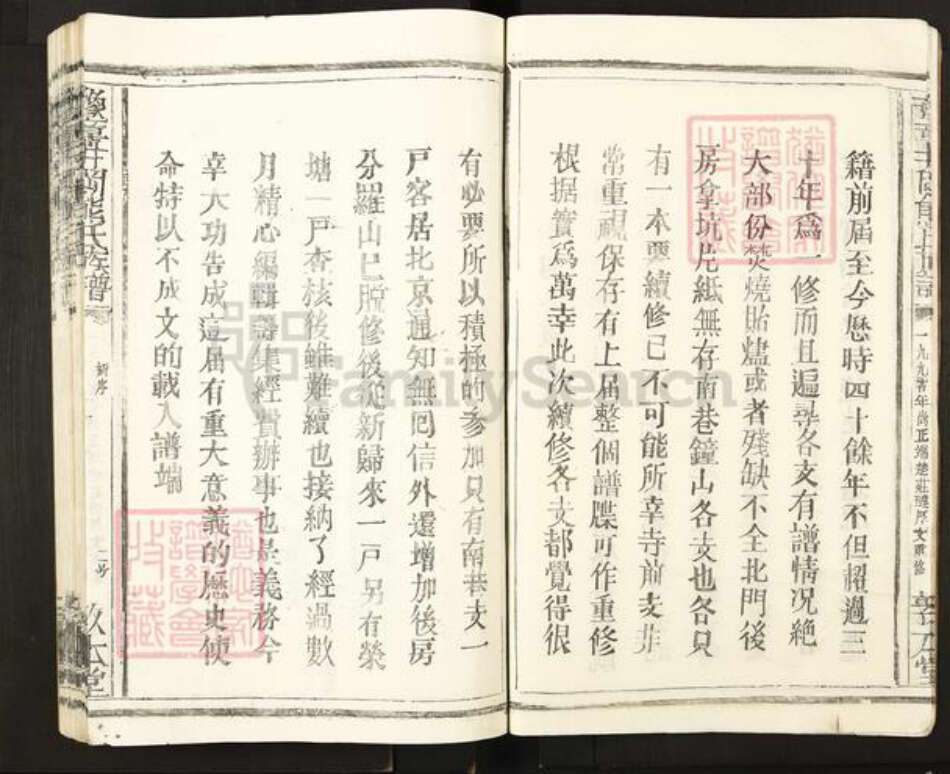 籍前届至今歷時四十餘年不但超過三
十年爲一修而且遍尋各支有譜情况絶
大部份焚燒貽燼或者殘缺不全北門後
房拿坑片紙無存南巷鐘山各支也各只
有一本要續修已不可能所幸寺前支非
常重視保存有上届整個譜牒可作重修
根据實爲萬幸此次續修各支都覺得很
有必要所以積極的参加只有南巷支一
戸客居北京通知無回信外還增加後房
分羅山已脫修後從新歸來一戸另有榮
塘一戸查核後雖難續也接納了經過數
月精心編輯籌集經費辦事也是義務今
幸大功告成這届有重大意義的歷史使
命特以不成文的載入譜端
氏族譜
新序
二
堂
FamilySearch
收藏
譜學會
收藏
譜學會